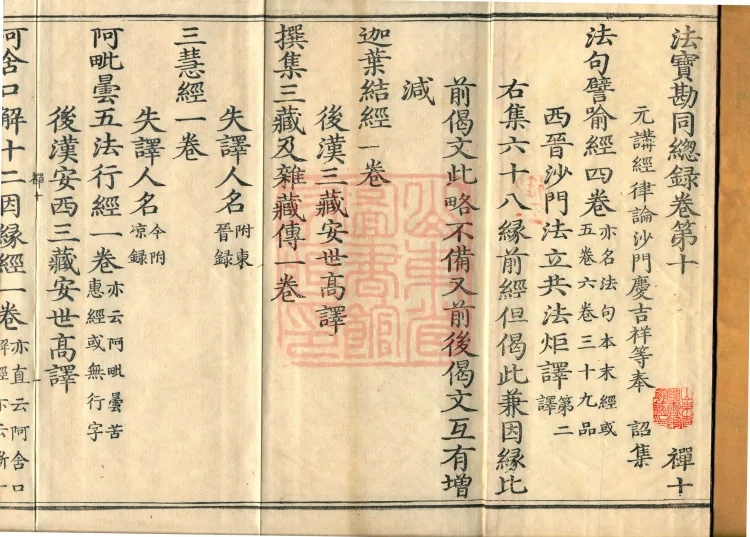 法寶勘同總録卷第十　禪十
元講經律論沙門慶吉祥等奉　詔集
法句譬喻經四卷亦名法句本末經或五卷六卷三十九品
西晉沙門法立共法炬譯第二譯
右集六十八緣前經但偈此兼因緣比
前偈文此略不備又前後偈文互有增
減
迦葉結經一卷
後漢三藏安世高譯
撰集三藏及雜藏傳一卷
失譯人名附東晉録
三慧經一卷
失譯人名今附凉録
阿毗曇五法行經一卷亦云阿毗曇苦惠經或無行字
後漢安西三藏安世高譯
禪十　一
阿含口解十二因緣經一卷亦直云阿含口解經亦云斷
山東省圖書館